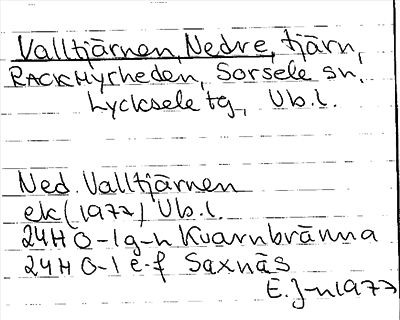 Valltjärnen, Nedre, tjärn,
RACKMyrheden, Sorsele sn,
Lycksele tg, Vb.l.
Ned. Valltjärnen
ek (1977) Vb.l.
24H 0-1 g-h Kvarnbränna
24H 0-1 e-f Saxnäs
E.J-n 1977